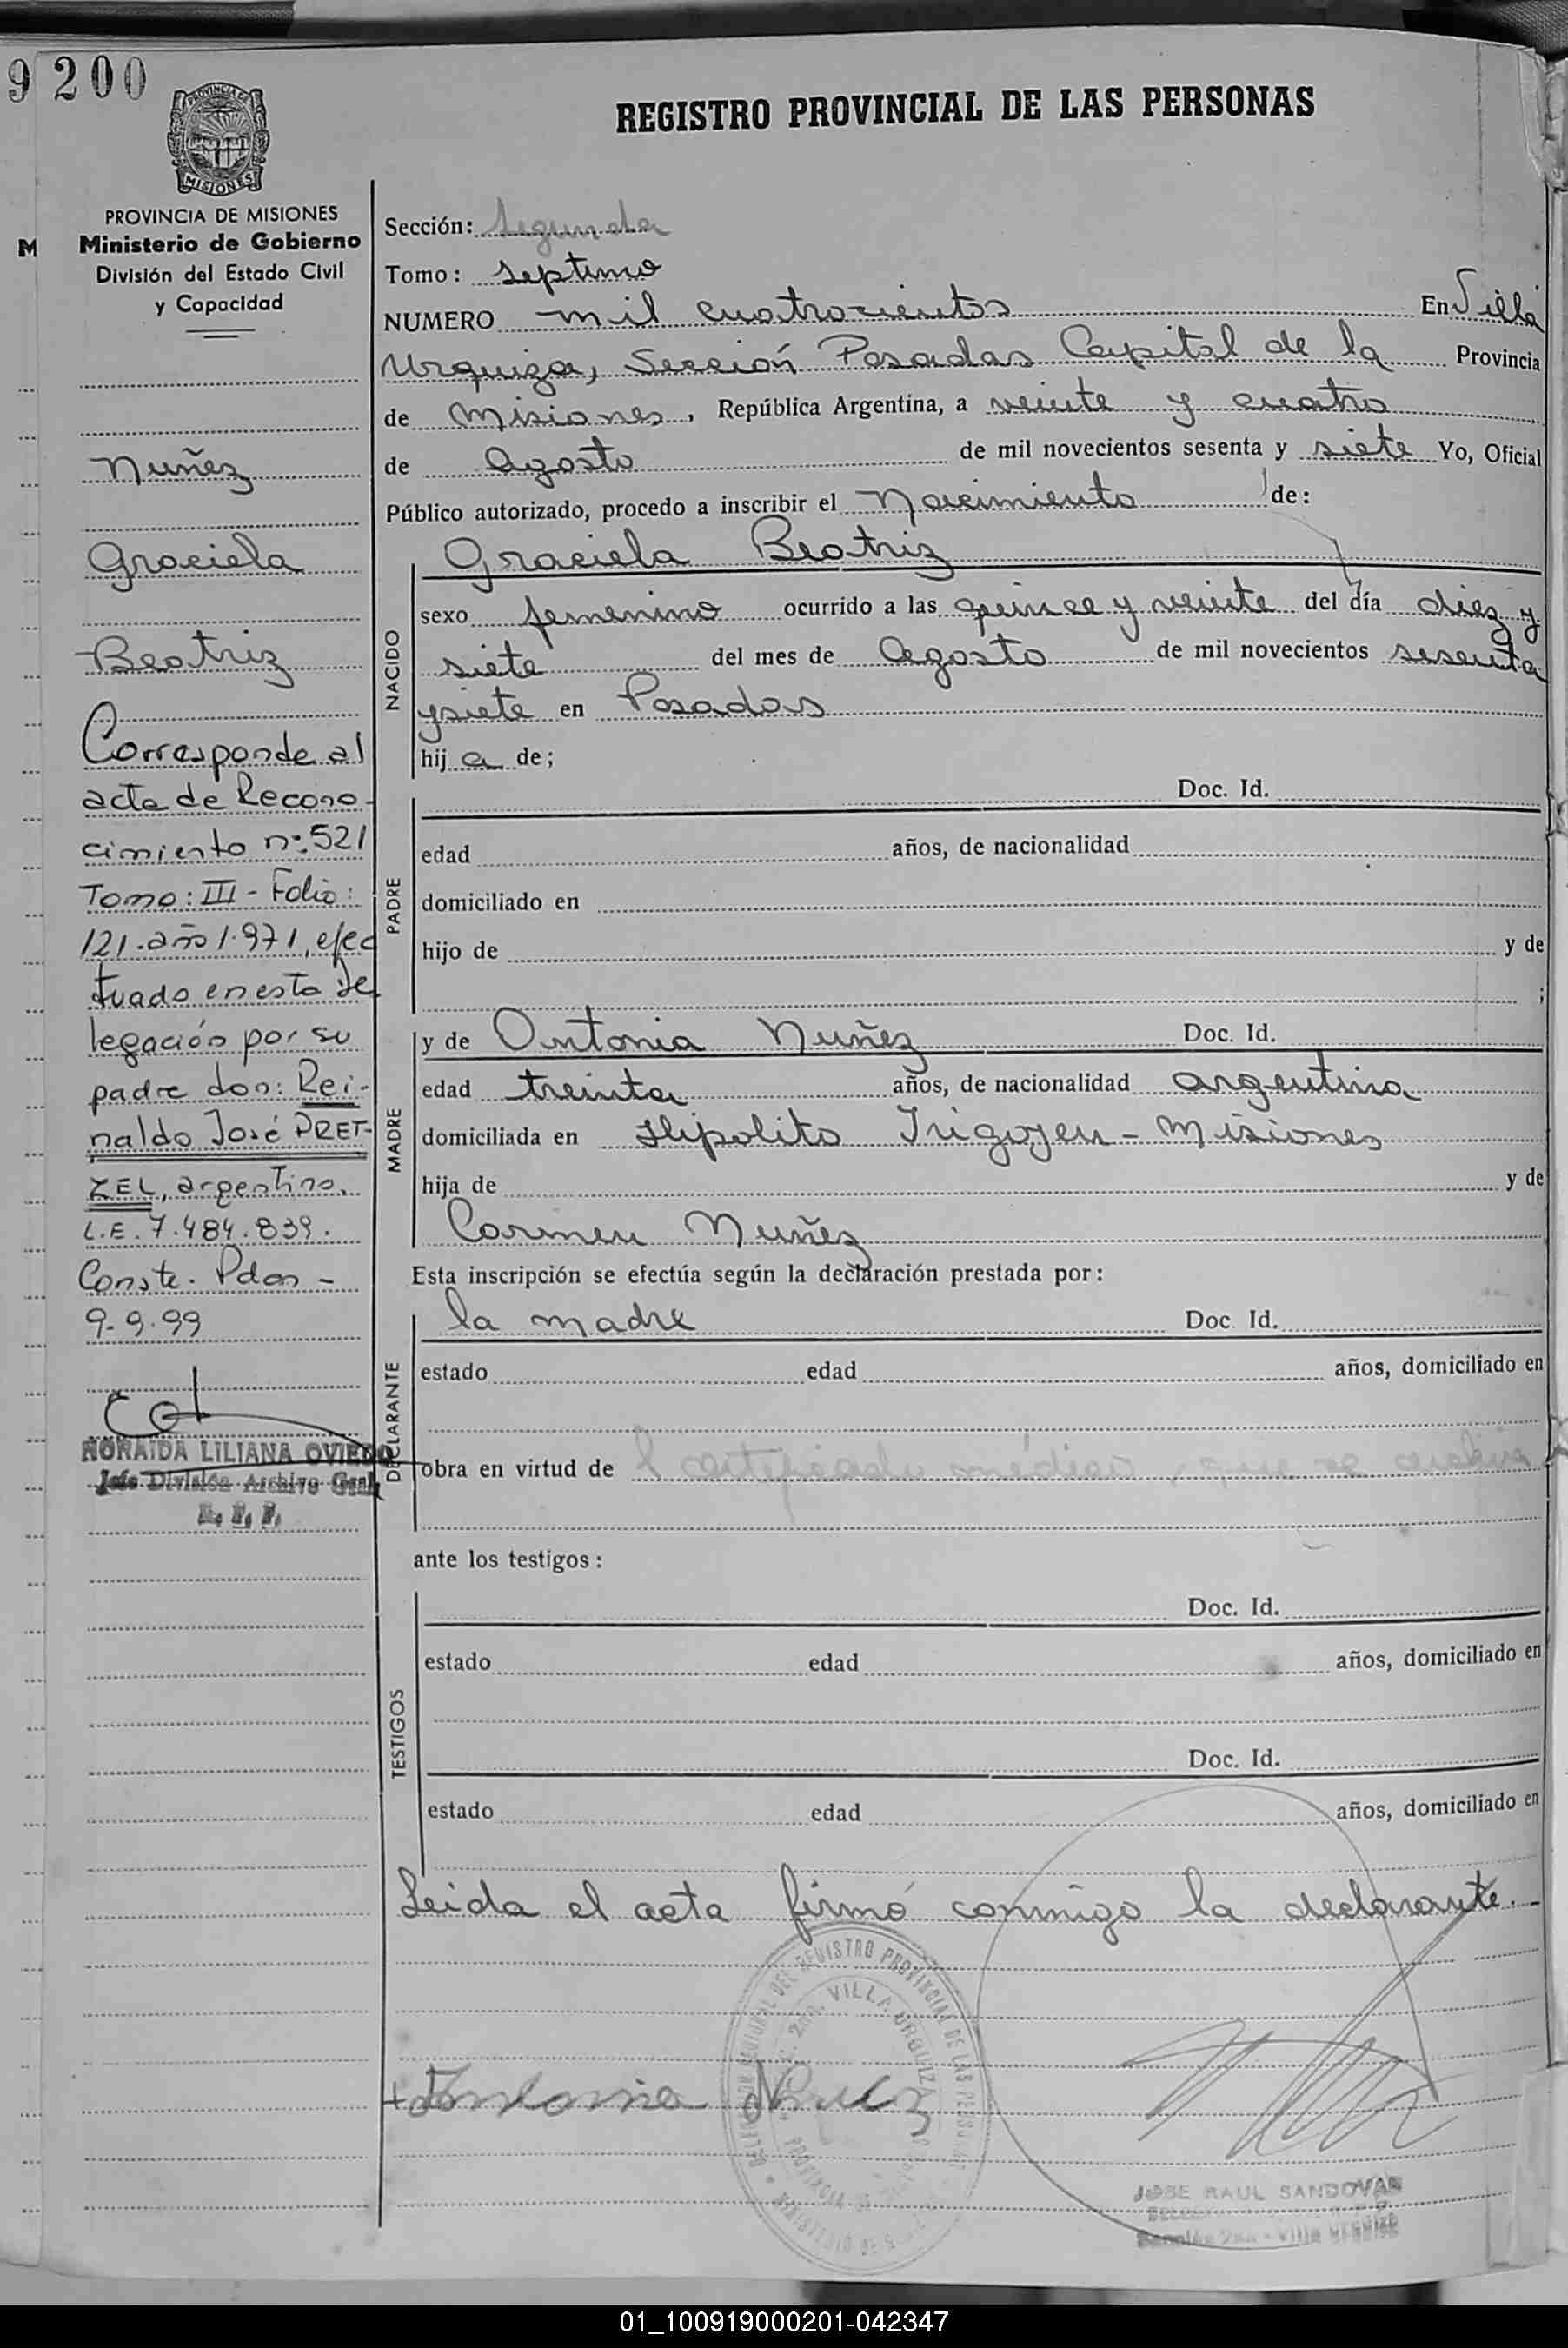 9 200
REGISTRO PROVINCIAL DE LAS PERSONAS
PROVINCIA DE
MISIONES
PROVINCIA DE MISIONES
M Ministerio de Gobierno
División del Estado Civil
y Capacidad
Nuñez
Graciela
Beatriz
Corresponde al
acta de Recono-
cimiento nº: 521
Tomo: III - Folio:
121. año 1.971, efec
tuado en esta De
legación por su
padre don: Rei-
naldo José PRET-
ZEL, argentino.
L.E. 7.484.839.
Conste. Pdas -
9-9-99
NORAIDA LILIANA OVIEDO
Jefe División Archivo Gral
R. P. P.
Sección: Segunda
Tomo: septimo
NUMERO mil cuatrocientos En Villa
Urquiza, Sección Posadas Capital de la Provincia
de Misiones, República Argentina, a veinte y cuatro
de Agosto de mil novecientos sesenta y siete Yo, Oficial
Público autorizado, procedo a inscribir el Nacimiento de:
NACIDO
Graciela Beatriz
sexo femenino ocurrido a las quince y veinte del día diez y
siete del mes de Agosto de mil novecientos sesenta
y siete en Posadas
hij a de;
PADRE
Doc. Id.
edad años, de nacionalidad
domiciliado en
hijo de y de
;
MADRE
y de Antonia Nuñez Doc. Id.
edad treinta años, de nacionalidad argentina
domiciliada en Hipolito Irigoyen - Misiones
hija de y de
Carmen Nuñez
Esta inscripción se efectúa según la declaración prestada por:
DECLARANTE
la madre Doc. Id.
estado edad años, domiciliado en
obra en virtud de l certificado médico, que se archiva
ante los testigos:
TESTIGOS
Doc. Id.
estado edad años, domiciliado en
Doc. Id.
estado edad años, domiciliado en
Leida el acta firmó conmigo la declarante.-
DELEGACION SECCIONAL DEL REGISTRO PROVINCIAL DE LAS PERSONAS
VILLA URQUIZA
PROVINCIA DE
MINISTERIO DE
+ Antonia Nuñez
JOSE RAUL SANDOVAL
Sección 2da - Villa Urquiza
01_100919000201-042347